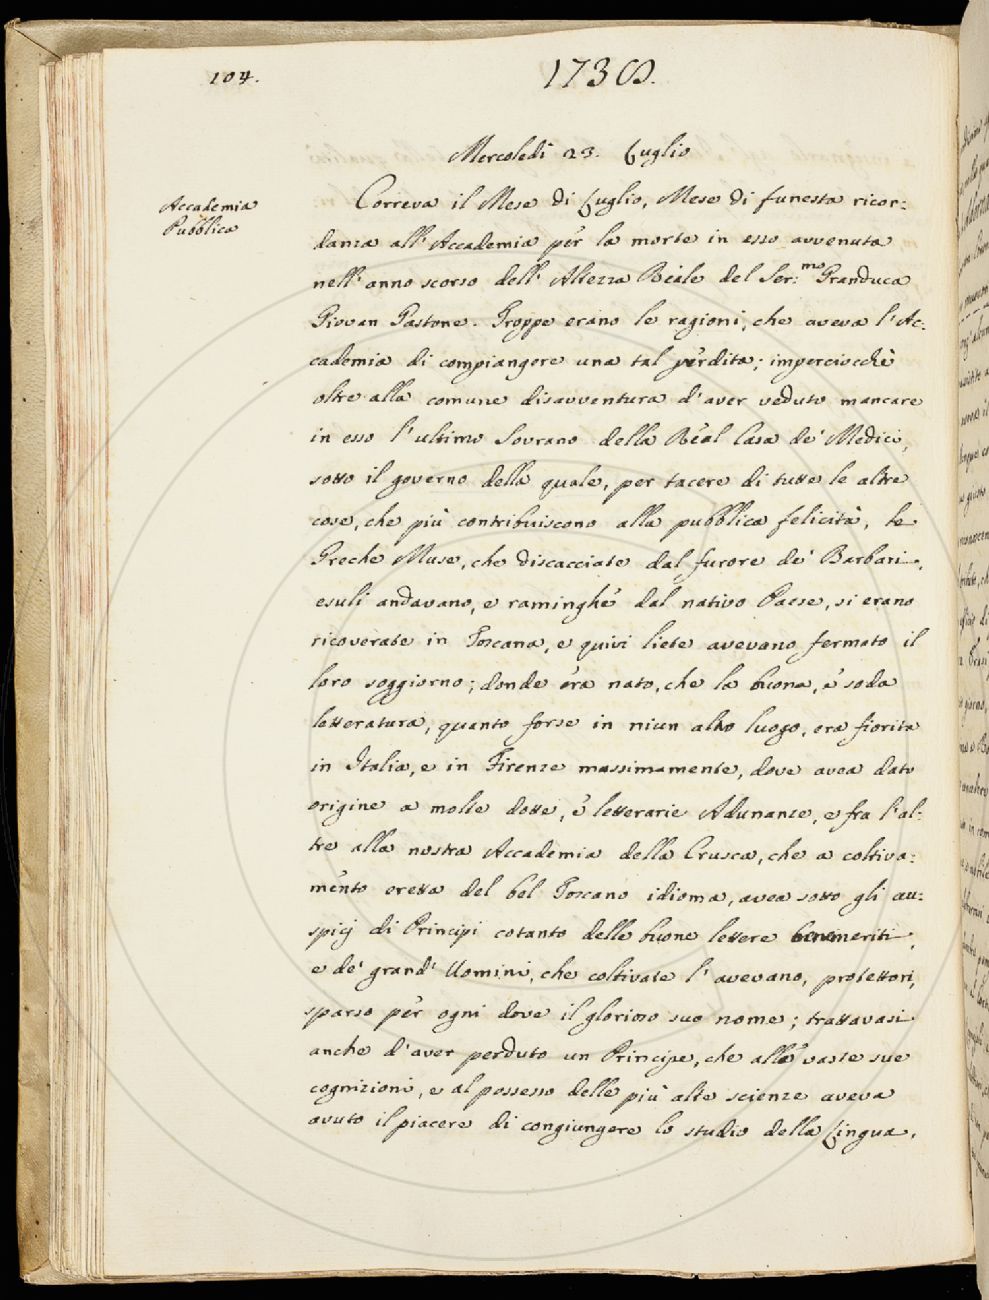 104.
1738.
Mercoledì 23. Luglio
Accademia
Pubblica
Correva il Mese di Luglio, Mese di funesta ricor:
danza all'Accademia per la morte in esso avvenuta
nell'anno scorso dell'Altezza Reale del Ser:mo Granduca
Giovan Gastone. Troppe erano le ragioni, che aveva l'Ac:
cademia di compiangere una tal perdita; imperciocchè
oltre alla comune disavventura d'aver veduto mancare
in esso l'ultimo Sovrano della Real Casa de' Medici,
sotto il governo della quale, per tacere di tutte le altre
cose, che più contribuiscono alla pubblica felicità, le
Greche Muse, che discacciate dal furore de' Barbari,
esuli andavano, e raminghe dal nativo Paese, si erano
ricoverate in Toscana, e quivi liete avevano fermato il
loro soggiorno; donde era nato, che la buona, e soda
letteratura, quanto forse in niun altro luogo, era fiorita
in Italia, e in Firenze massimamente, dove avea dato
origine a molte dotte, e letterarie Adunanze, e fra l'al:
tre alla nostra Accademia della Crusca, che a coltiva:
mento eretta del bel Toscano idioma, avea sotto gli au:
spicj di Principi cotanto delle buone lettere benemeriti,
e de' grand' Uomini, che coltivate l'avevano, protettori,
sparso per ogni dove il glorioso suo nome; trattavasi
anche d'aver perduto un Principe, che alle vaste sue
cognizioni, e al possesso delle più alte scienze aveva
avuto il piacere di congiungere lo studio della Lingua,